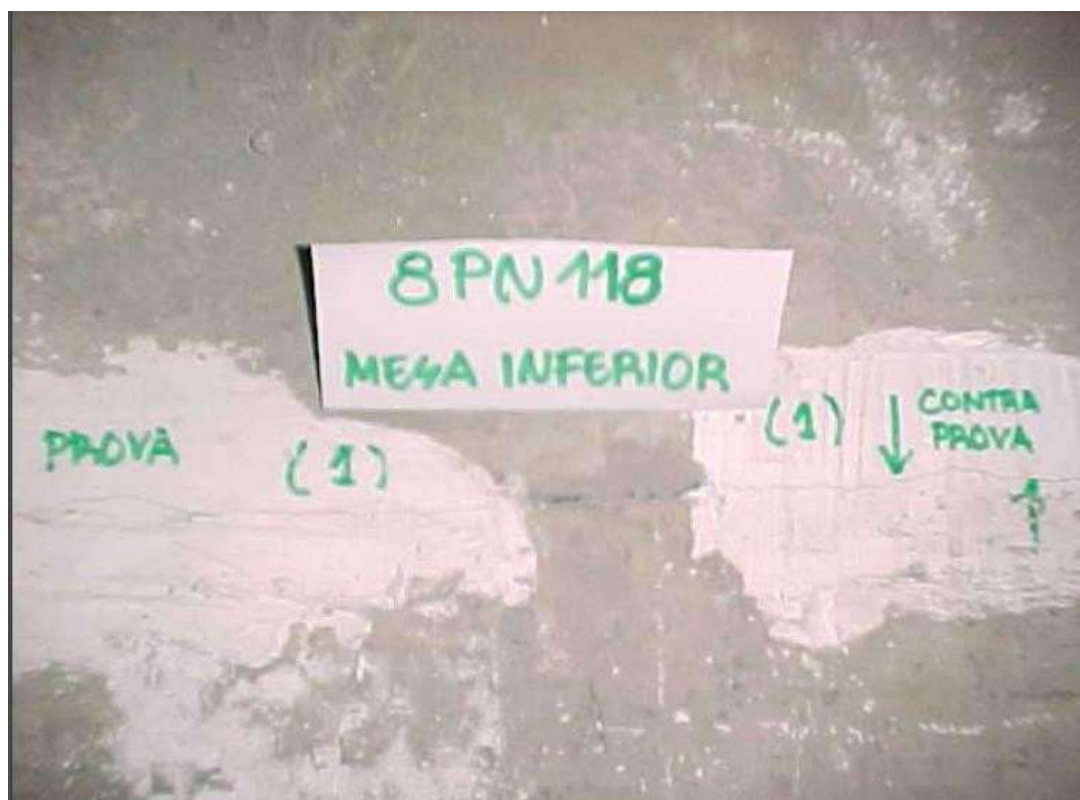 8PN118
MESA INFERIOR
PROVA (1)
(1) ↓ CONTRA
PROVA
↑